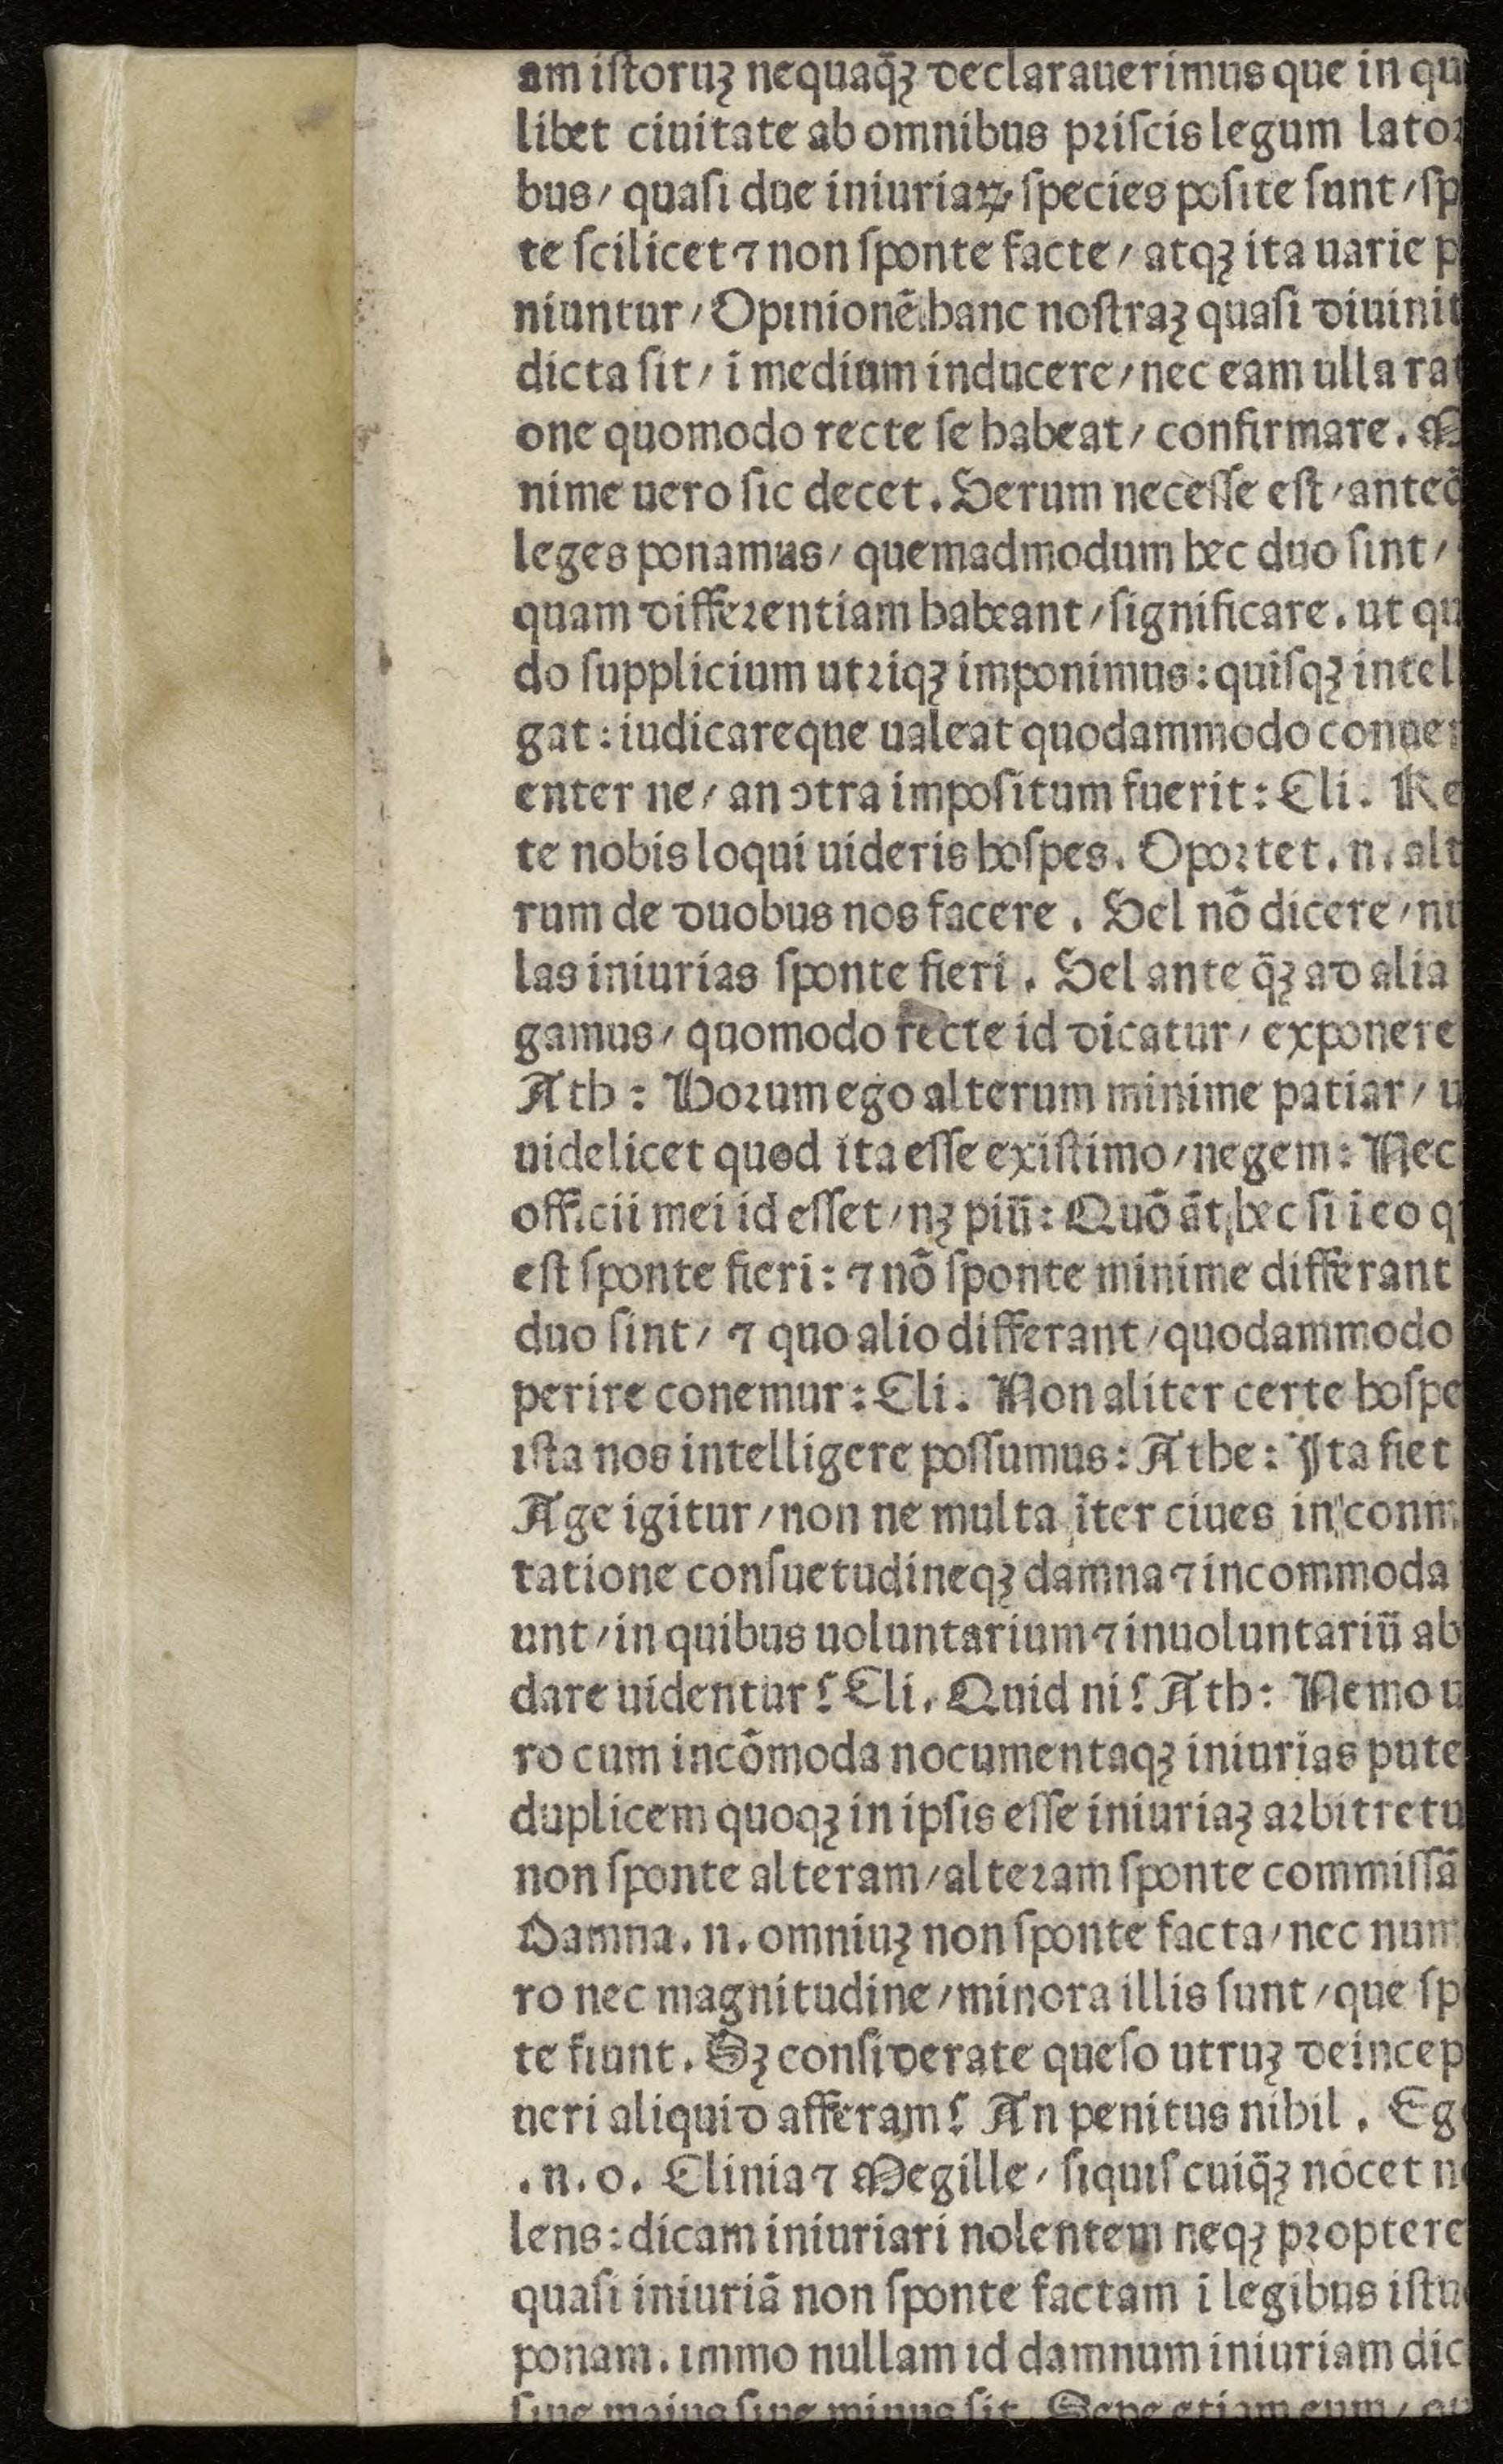 am iſtoruꝫ nequaq̃ꝫ declarauerimus que in qu
libet ciuitate ab omnibus pꝛiſcis legum latoꝛ
bus / quaſi due iniuriaꝝ ſpecies poſite ſunt / ſp
te ſcilicet ⁊ non ſponte facte / atqꝫ ita uarie p
niuntur / Opinionẽ hanc noſtraꝫ quaſi diuinit
dicta ſit / ĩ medium inducere / nec eam ulla rat
one quomodo recte ſe habeat / confirmare. M
nime uero ſic decet. Verum neceſſe eſt / anteq̃
leges ponamus / quemadmodum hec duo ſint /
quam differentiam habeant / ſignificare. ut qu
do ſupplicium utꝛiqꝫ imponimus: quiſqꝫ intel
gat: iudicareque ualeat quodammodo conuen
enter ne / an ↄtra impoſitum fuerit: Cli. Re
te nobis loqui uideris hoſpes. Opoꝛtet. n. alt
rum de duobus nos facere. Vel nõ dicere / nu
las iniurias ſponte fieri. Vel ante q̃ꝫ ad alia
gamus / quomodo recte id dicatur / exponere
Ath: Hoꝛum ego alterum minime patiar / u
uidelicet quod ita eſſe exiſtimo / negem: Nec
officii mei id eſſet / nꝫ piũ: Quõ ãt hec ſi ĩ eo q
eſt ſponte fieri: ⁊ nõ ſponte minime differant
duo ſint / ⁊ quo alio differant / quodammodo
perire conemur: Cli. Non aliter certe hoſpe
iſta nos intelligere poſſumus: Athe: Ita fiet
Age igitur / non ne multa ĩter ciues in conm
tatione conſuetudineqꝫ damna ⁊ incommoda
unt / in quibus uoluntarium ⁊ inuoluntariũ ab
dare uidentur? Cli. Quid ni? Ath: Nemo u
ro cum incõmoda nocumentaqꝫ iniurias pute
duplicem quoqꝫ in ipſis eſſe iniuriaꝫ aꝛbitretu
non ſponte alteram / alteꝛam ſponte commiſſã
Damna. n. omniuꝫ non ſponte facta / nec num
ro nec magnitudine / minora illis ſunt / que ſp
te fiunt. Sꝫ conſiderate queſo utruꝫ deincep
neri aliquid afferam? An penitus nihil. Ego
. n. o. Clinia ⁊ Megille / ſiquiſ cuiq̃ꝫ nocet no
lens: dicam iniuriari nolentem neqꝫ pꝛoptere
quaſi iniuriã non ſponte factam ĩ legibus iſtu
ponam. immo nullam id damnum iniuriam dic
ſiue maius ſiue minus ſit. Sepe etiam eum / qu